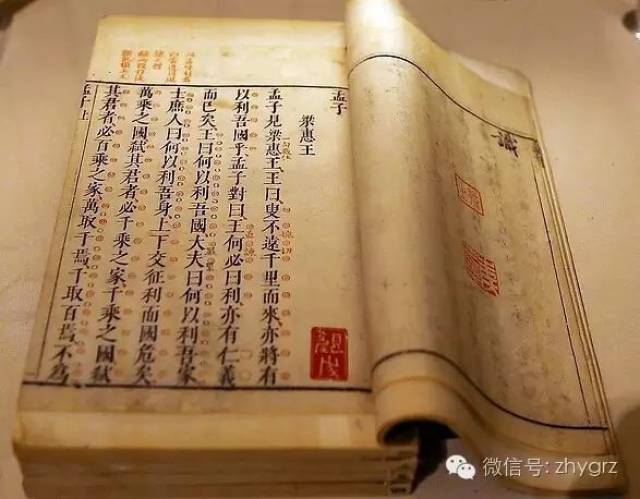 識
孟子
梁惠王
孟子見梁惠王王曰叟不遠千里而來亦將有
以利吾國乎孟子對曰王何必曰利亦有仁義
而已矣王曰何以利吾國大夫曰何以利吾家
士庶人曰何以利吾身上下交征利而國危矣
萬乘之國弒其君者必千乘之家千乘之國弒
其君者必百乘之家萬取千焉千取百焉不為
孟子 上
微信号: zhygrz